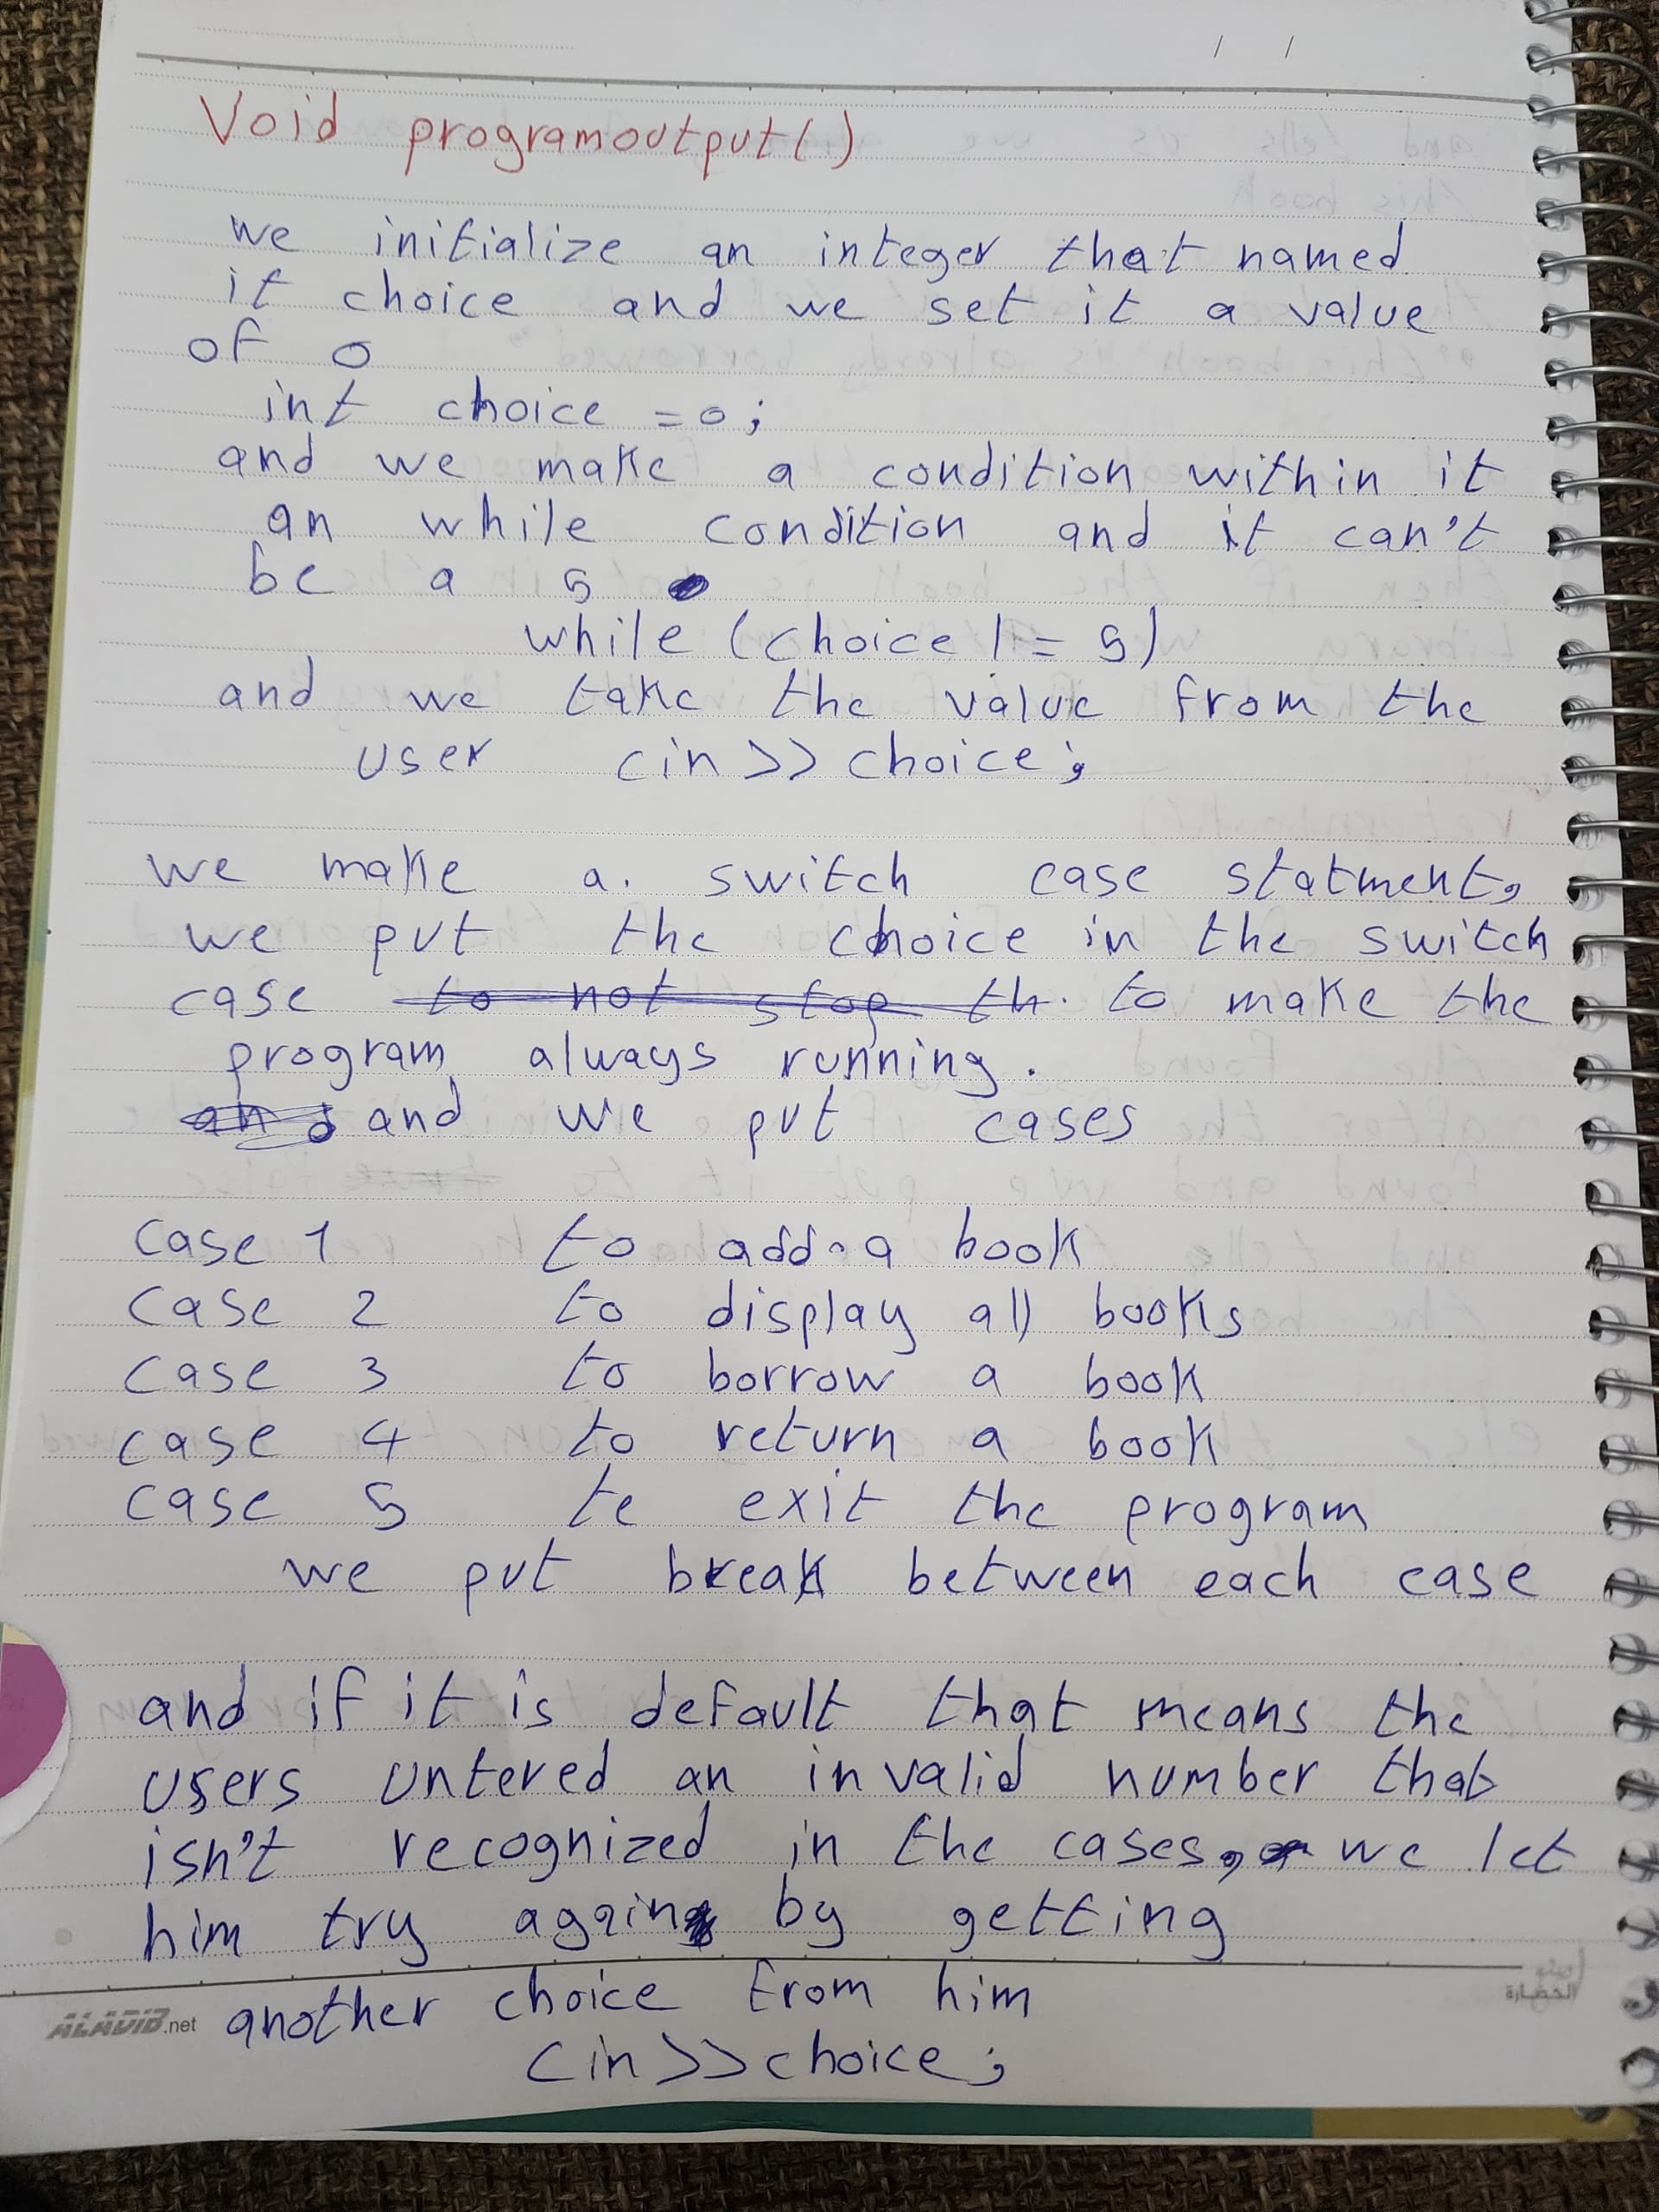 / /
Void programoutput()
we initialize an integer that named
it choice and we set it a value
of 0
int choice =0;
and we make a condition within it
an while condition and it can't
be a 5
while (choice != 5)
and we take the value from the
user cin>>choice;
we make a. switch case statment,
we put the choice in the switch
case to not stop th. to make the
program always running.
and and we put cases
case 1 to add a book
case 2 to display all books
case 3 to borrow a book
case 4 to return a book
case 5 te exit the program
we put break between each case
and if it is default that means the
users untered an invalid number that
isn't recognized in the cases, we let
him try again by getting
another choice from him
cin>>choice;
ALADIB.net